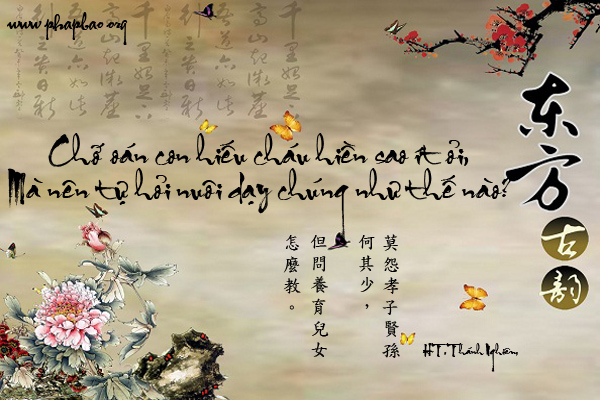 www.phapbao.org
Chớ oán con hiếu cháu hiền sao ít ỏi,
Mà nên tự hỏi nuôi dạy chúng như thế nào?
东方
古韵
莫怨孝子賢孫
何其少，
但問養育兒女
怎麼教。
HT. Thánh Nghiêm